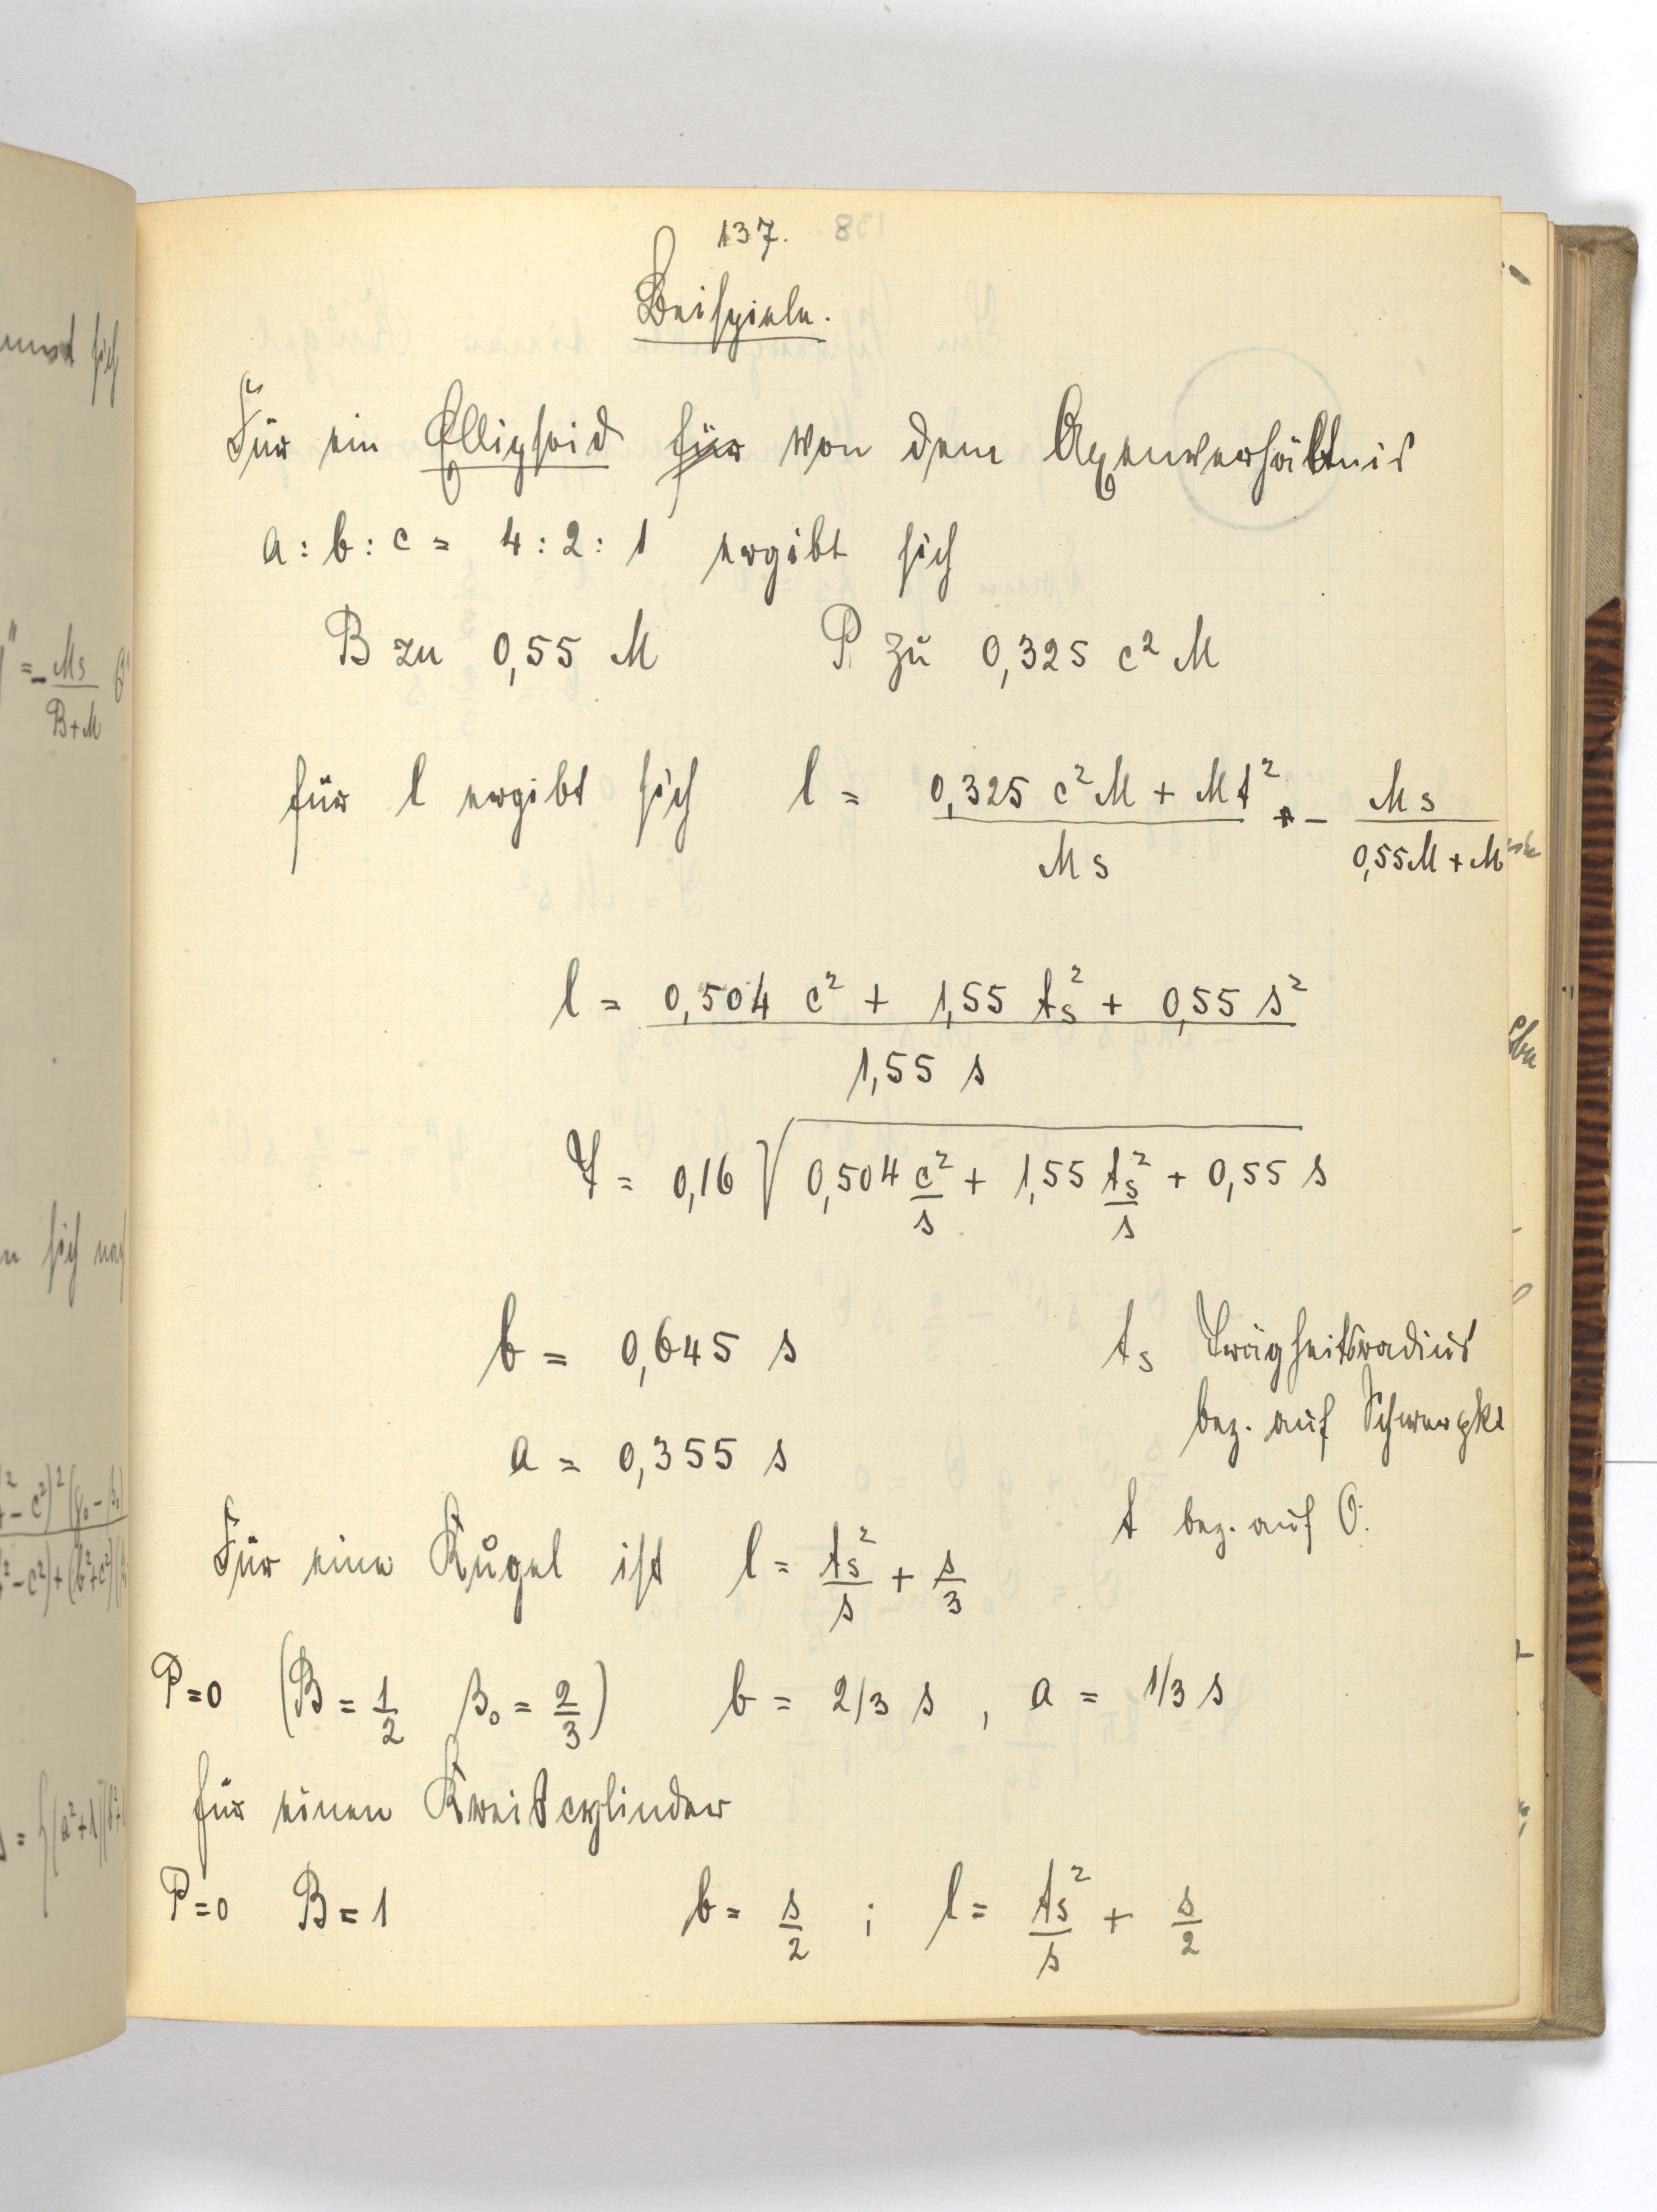 137.
Beispiele.
Für ein Ellipsoid für von dem Axenverhältnis
a : b : c = 4 : 2 : 1 ergibt sich
B zu 0,55 M P zu 0,325 c² M
für l ergibt sich l = (0,325 c² M + M t²) / (M s) - (M s) / (0,55 M + M)
l = (0,504 c² + 1,55 t_s² + 0,55 s²) / (1,55 s)
T = 0,16 √(0,504 c²/s + 1,55 t_s²/s + 0,55 s)
b = 0,645 s
t_s Trägheitsradius
bez. auf Schwerpkt
a = 0,355 s
t bez. auf O.
Für eine Kugel ist l = t_s²/s + s/3
P=0 (B = 1/2 β₀ = 2/3) b = 2/3 s , a = 1/3 s
für einen Kreiscylinder
P=0 B = 1 b = s/2 ; l = t_s²/s + s/2